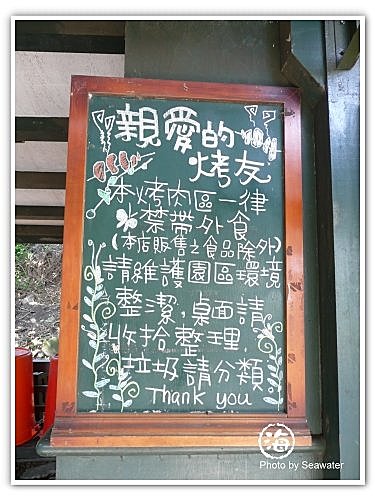 親愛的
烤友
本烤肉區一律
禁帶外食
(本店販售之食品除外)
請維護園區環境
整潔,桌面請
收拾整理
垃圾請分類。
Thank you
海
Photo by Seawater